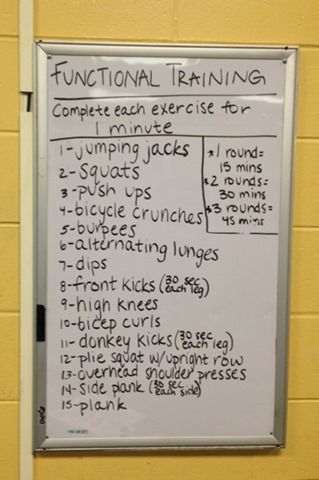 FUNCTIONAL TRAINING
Complete each exercise for
1 minute
1-jumping jacks
2-Squats
3-push ups
4-bicycle crunches
5-burpees
6-alternating lunges
7-dips
8-front kicks (30 sec each leg)
9-high knees
10-bicep curls
11-donkey kicks (30 sec each leg)
12-plie squat w/upright row
13-overhead shoulder presses
14-side plank (30 sec each side)
15-plank
*1 round=
15 mins
*2 rounds=
30 mins
*3 rounds=
45 mins